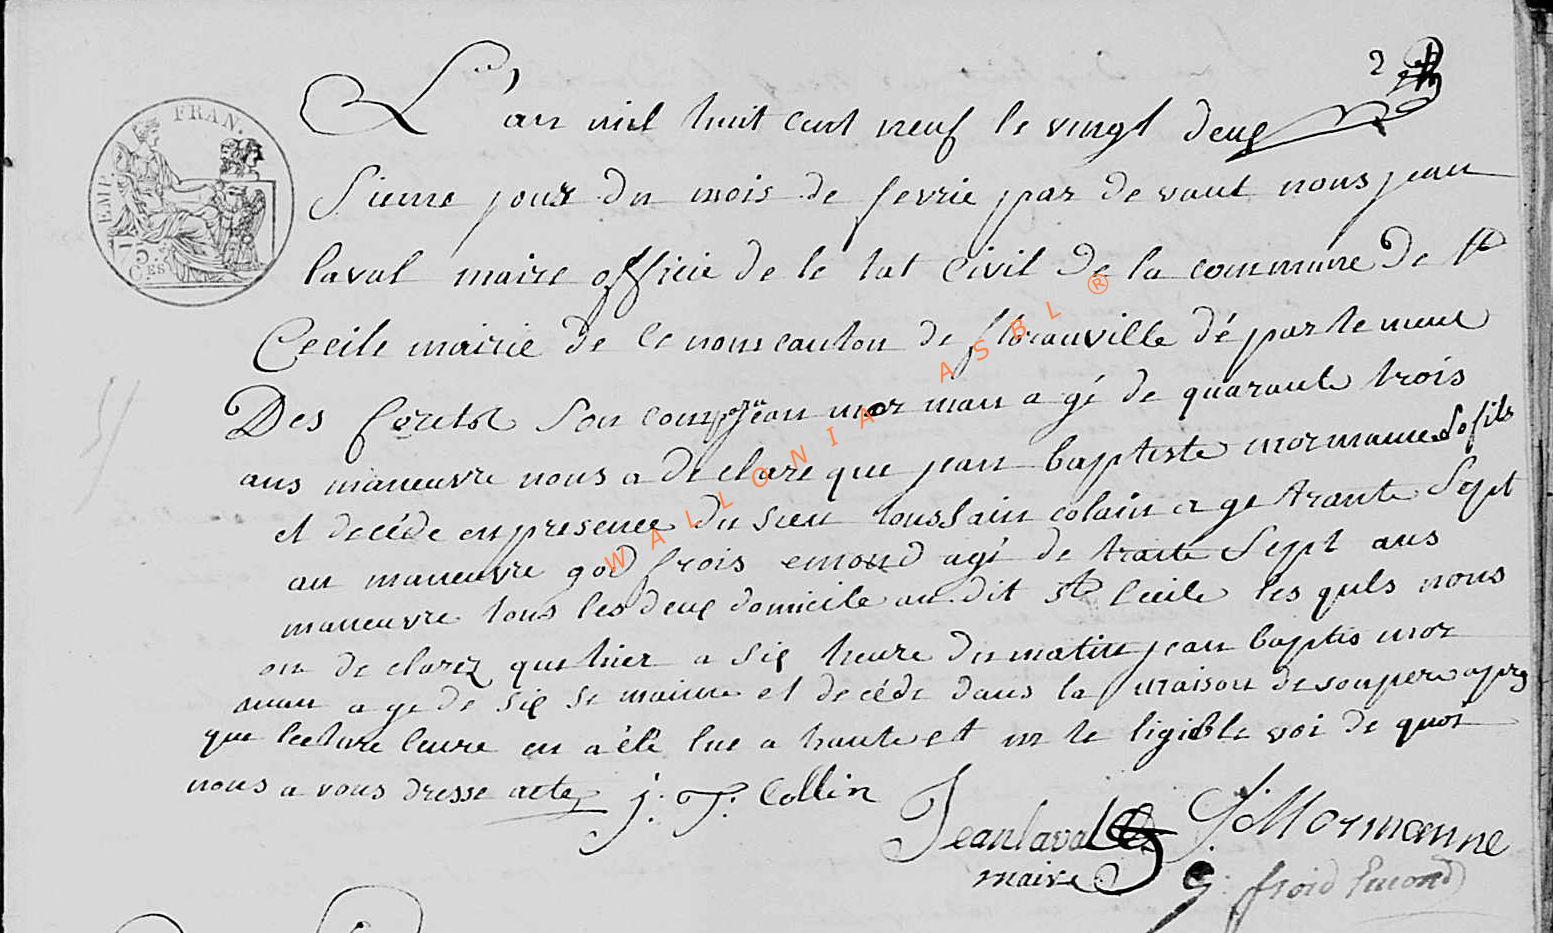 2
EMP. FRAN.
75.
CES
L'an mil huit cent neuf le vingt deux
sieme jour du mois de fevrie par de vant nous jean
laval maire officie de le tat civil de la commune de ste
Cecile mairie de ce nom canton de florauville dé parte ment
Des foretst son comp jean mor man a gé de quarante trois
ans maneuvre nous a de clare que jean baptiste mormanne so fils
et decéde en presence du sieu toussain colain a ge trante sept
an maneuvre god frois emond agé de traite sept ans
maneuvre tous les deux domicile au dit ste Cecile les quls nous
on de clarez que hier a six heure du matin jean baptis mor
man a ge de six se maine et decéde dans la maison de son pere apres
que lecture leure en a été lue a haute et in te ligible voi de quoi
nous a vons dresse acte j. T. Collin
Jean laval
maire
J: Mormanne
g: froid Emond
WALLONIA ASBL ®